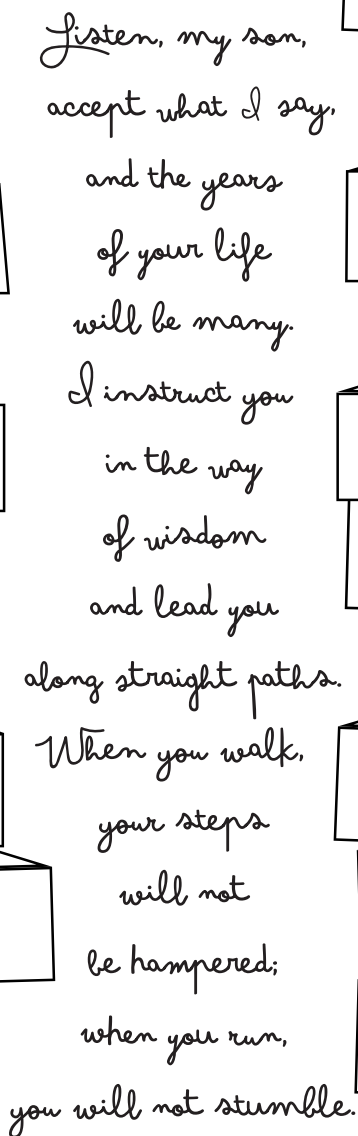 Listen, my son,
accept what I say,
and the years
of your life
will be many.
I instruct you
in the way
of wisdom
and lead you
along straight paths.
When you walk,
your steps
will not
be hampered;
when you run,
you will not stumble.